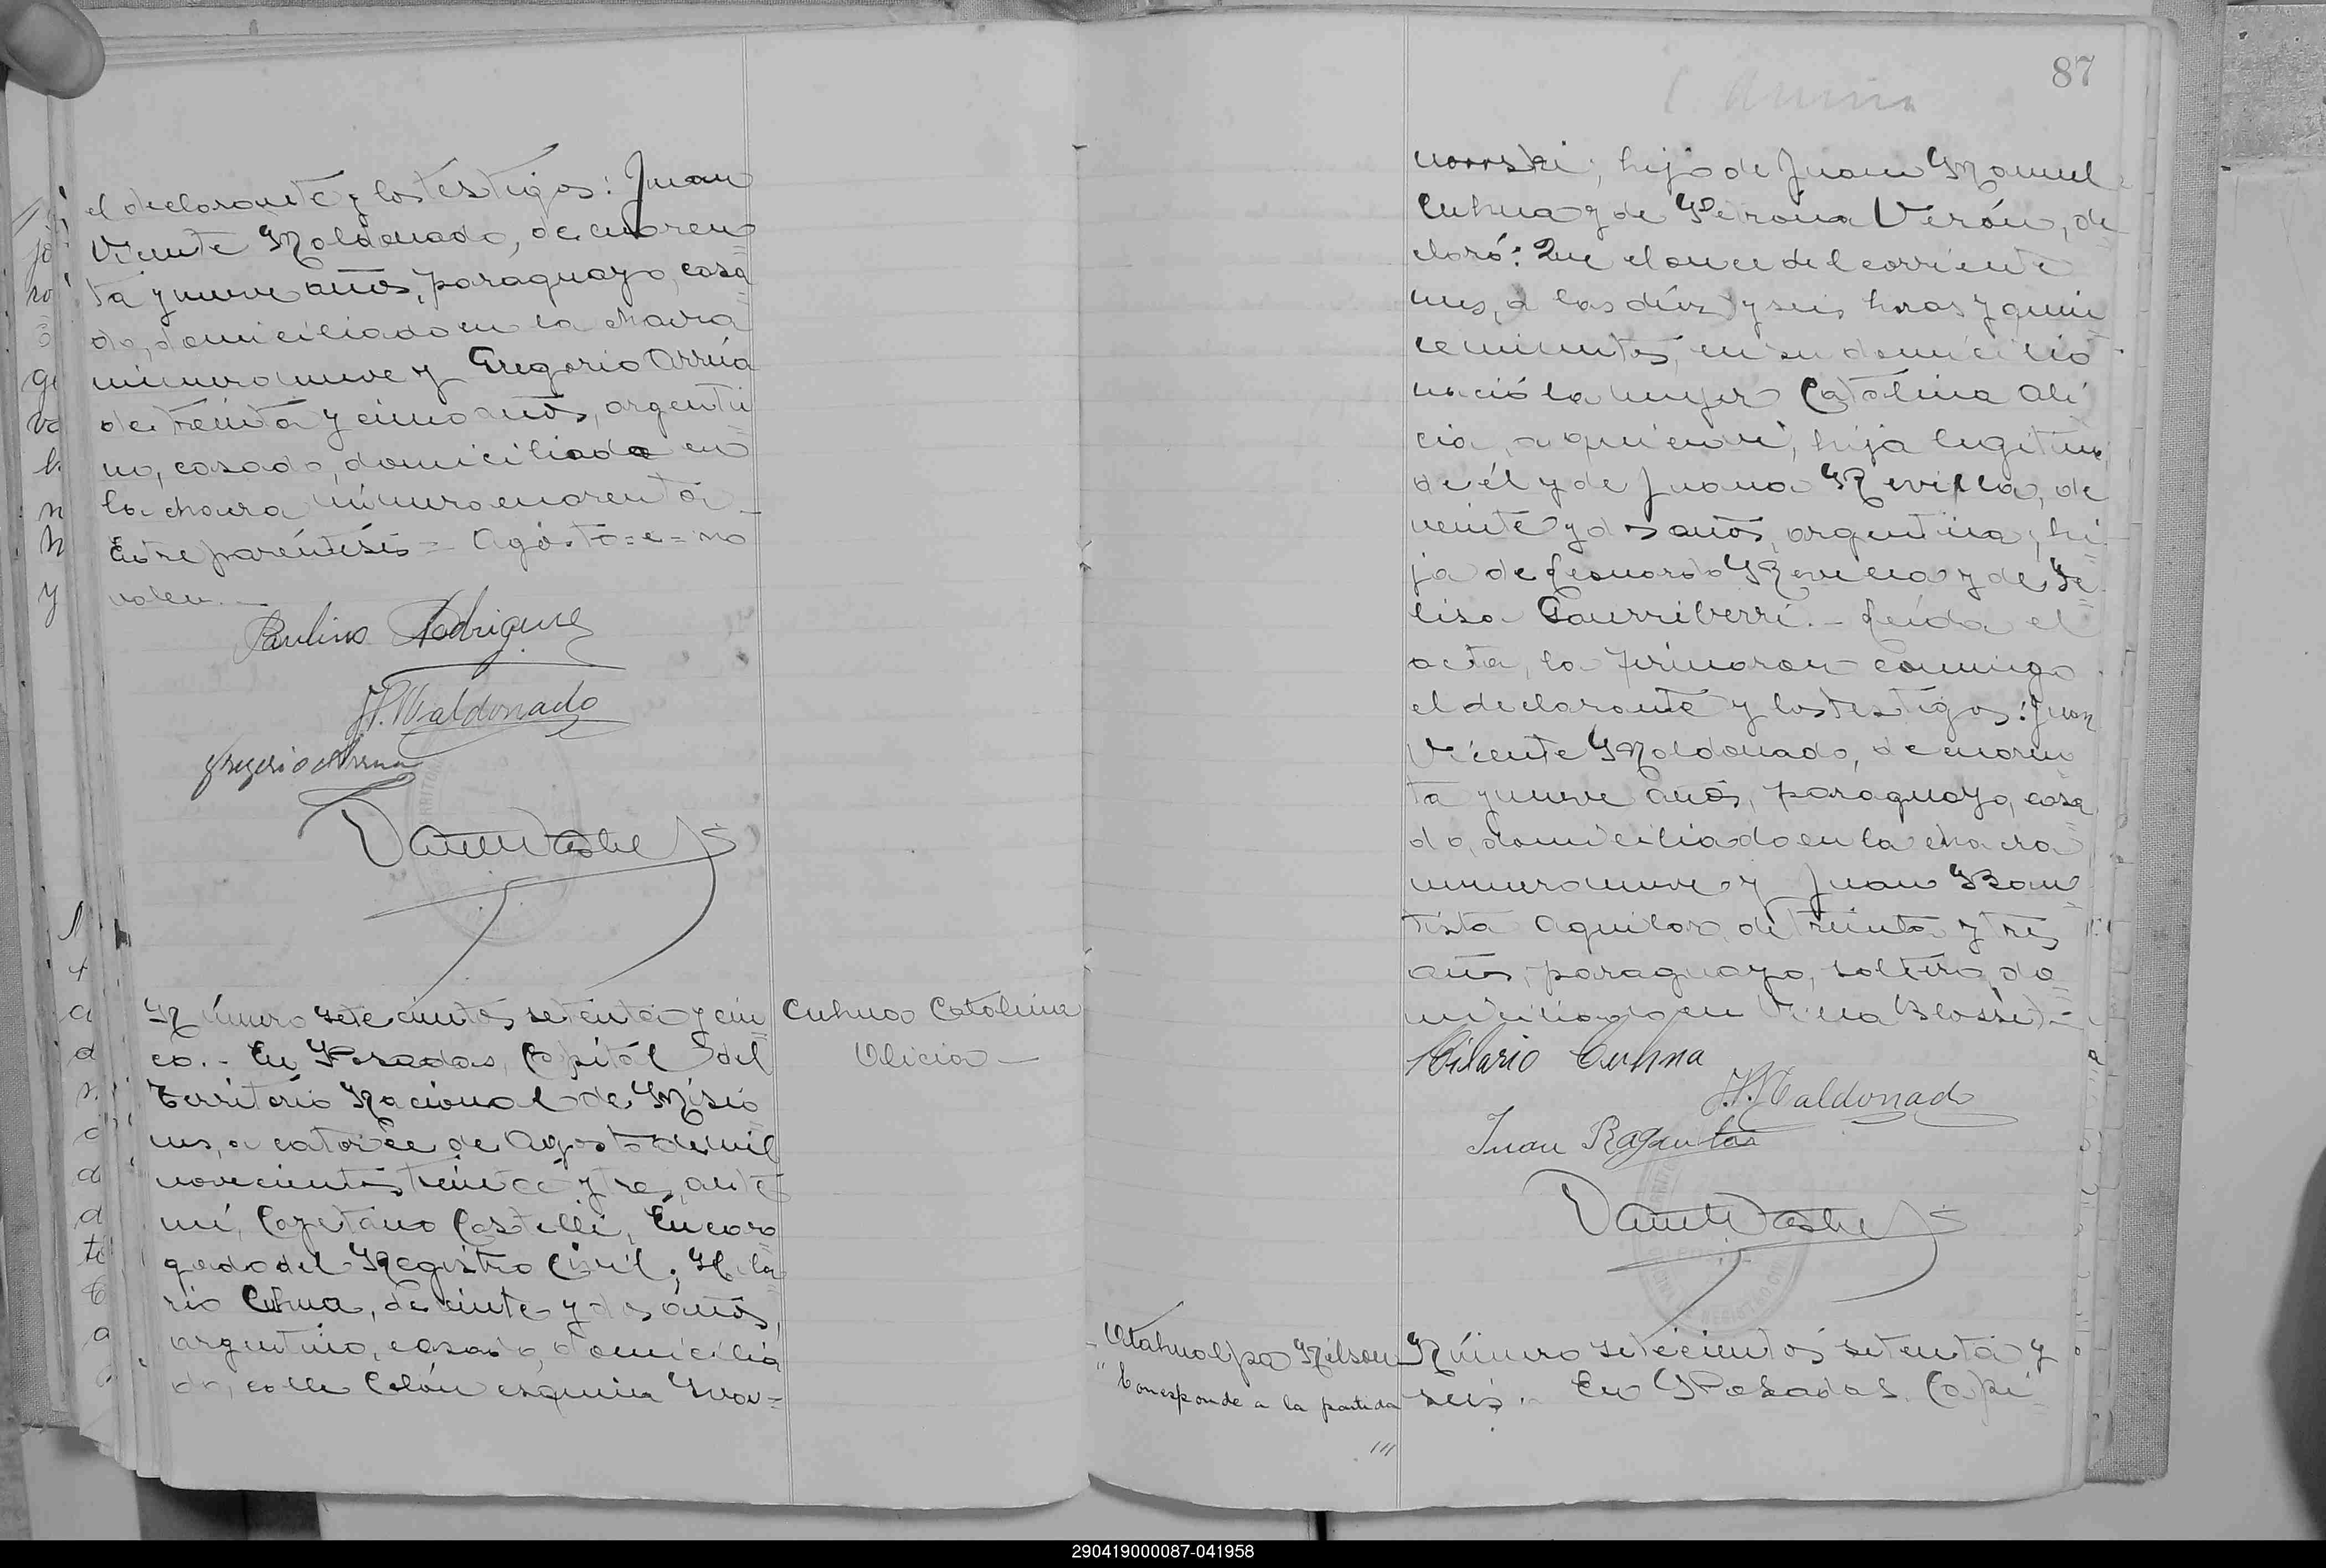 el declarante y los testigos: Juan
Vicente Maldonado, de cuaren=
ta y nueve años, paraguayo, casa=
do, domiciliado en la chacra
número nueve y Gregorio Arrúa
de treinta y cinco años, argenti=
no, casado, domiciliado en
la chacra número cuarenta_
Entre paréntesis = Agosto = e = no
valen.—
Paulino Rodriguez
J.V. Maldonado
Gregorio Arrua
Número setecientos setenta y cin=
co.- En Posadas, Capital del
Territorio Nacional de Misio
nes, a catorce de Agosto de mil
novecientos treinta y tres, ante
mí, Cayetano Castelli, Encar
gado del Registro Civil; Hila=
rio Cuhua, de veinte y dos años,
argentino, casado, domicilia
do, calle Colón esquina
Cuhua Catalina
Alicia —
87
hijo de Juan Manuel
Cuhua y de Petrona Verón, de=
claró: Que el once del corriente
mes, a las diez y seis horas y quin
ce minutos, en su domicilio
nació la mujer Catalina Ali
cia, a quien ví, hija legítima
de él y de Juana Revilla, de
veinte y dos años, argentina, hi=
ja de Leonardo Revilla y de Fe=
lisa Gaurriberri.- Leída el
acta, la firmaron conmigo
el declarante y los testigos: Juan
Vicente Maldonado, de cuaren
ta y nueve años, paraguayo, casa=
do, domiciliado en la chacra
número nueve y Juan Bau=
tista Aguilar, de treinta y tres
años, paraguayo, soltero, do=
miciliado en Villa Blosset.—
Hilario Cuhua
J.V. Maldonado
Juan
Atahualpa Nelson
"Corresponde a la partida
///
Número setecientos setenta y
seis.- En Posadas, Capi=
290419000087-041958